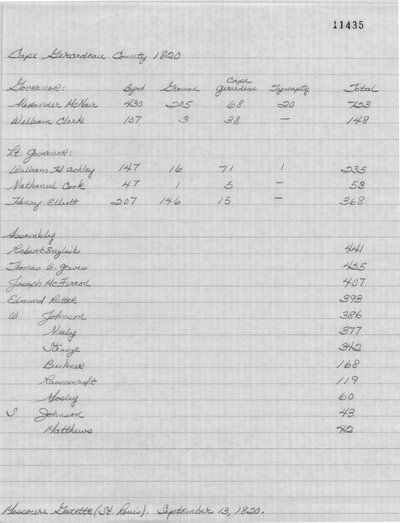 11435
Cape Girardeau County 1820
Governor: Byrd German Cape Girardeau Tywapity Total
Alexander McNair 430 205 68 20 723
William Clark 107 3 38 — 148
Lt. Governor:
William H Ashley 147 16 71 1 235
Nathaniel Cook 47 1 5 — 53
Henry Elliott 207 146 15 — 368
Assembly
Robert English 441
Thomas W. Graves 435
Joseph McFerron 407
Edmund Rutter 393
W Johnson 386
Neely 377
Strange 342
Buckner 168
Ravenscroft 119
Mosley 60
S Johnson 43
Matthews 42
Missouri Gazette (St. Louis). September 13, 1820.